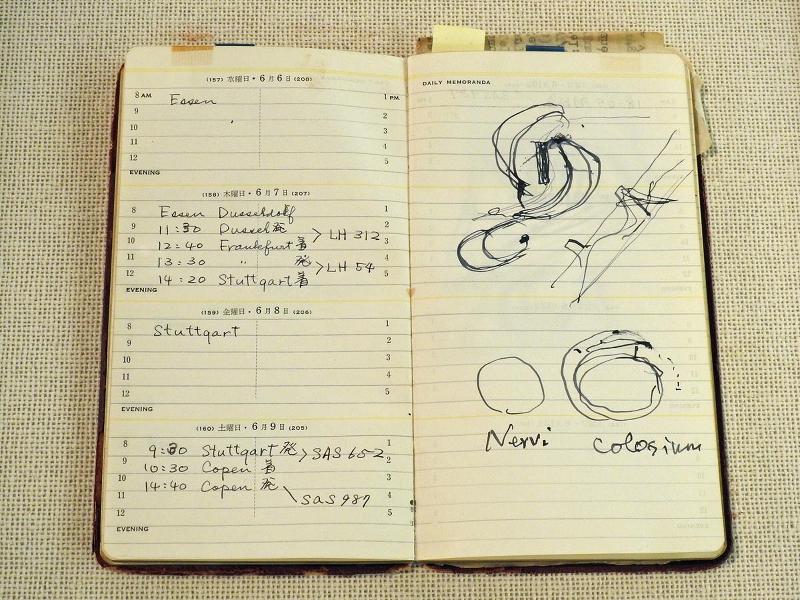 (157) 水曜日・6月6日 (208)
8 AM Essen 1 PM.
9 2
10 3
11 4
12 5
EVENING
(158) 木曜日・6月7日 (207)
8 Essen Dusseldolf 1
9 11:30 Dussel 発 2
10 12:40 Frankfurt 着 > LH 312 3
11 13:30 〃 発 4
12 14:20 Stuttgart 着 > LH 54 5
EVENING
(159) 金曜日・6月8日 (206)
8 Stuttgart 1
9 2
10 3
11 4
12 5
EVENING
(160) 土曜日・6月9日 (205)
8 9:30 Stuttgart 発 > SAS 652 1
9 10:30 Copen 着 2
10 14:40 Copen 発 3
11 SAS 987 4
12 5
EVENING
DAILY MEMORANDA
Nervi Colosium